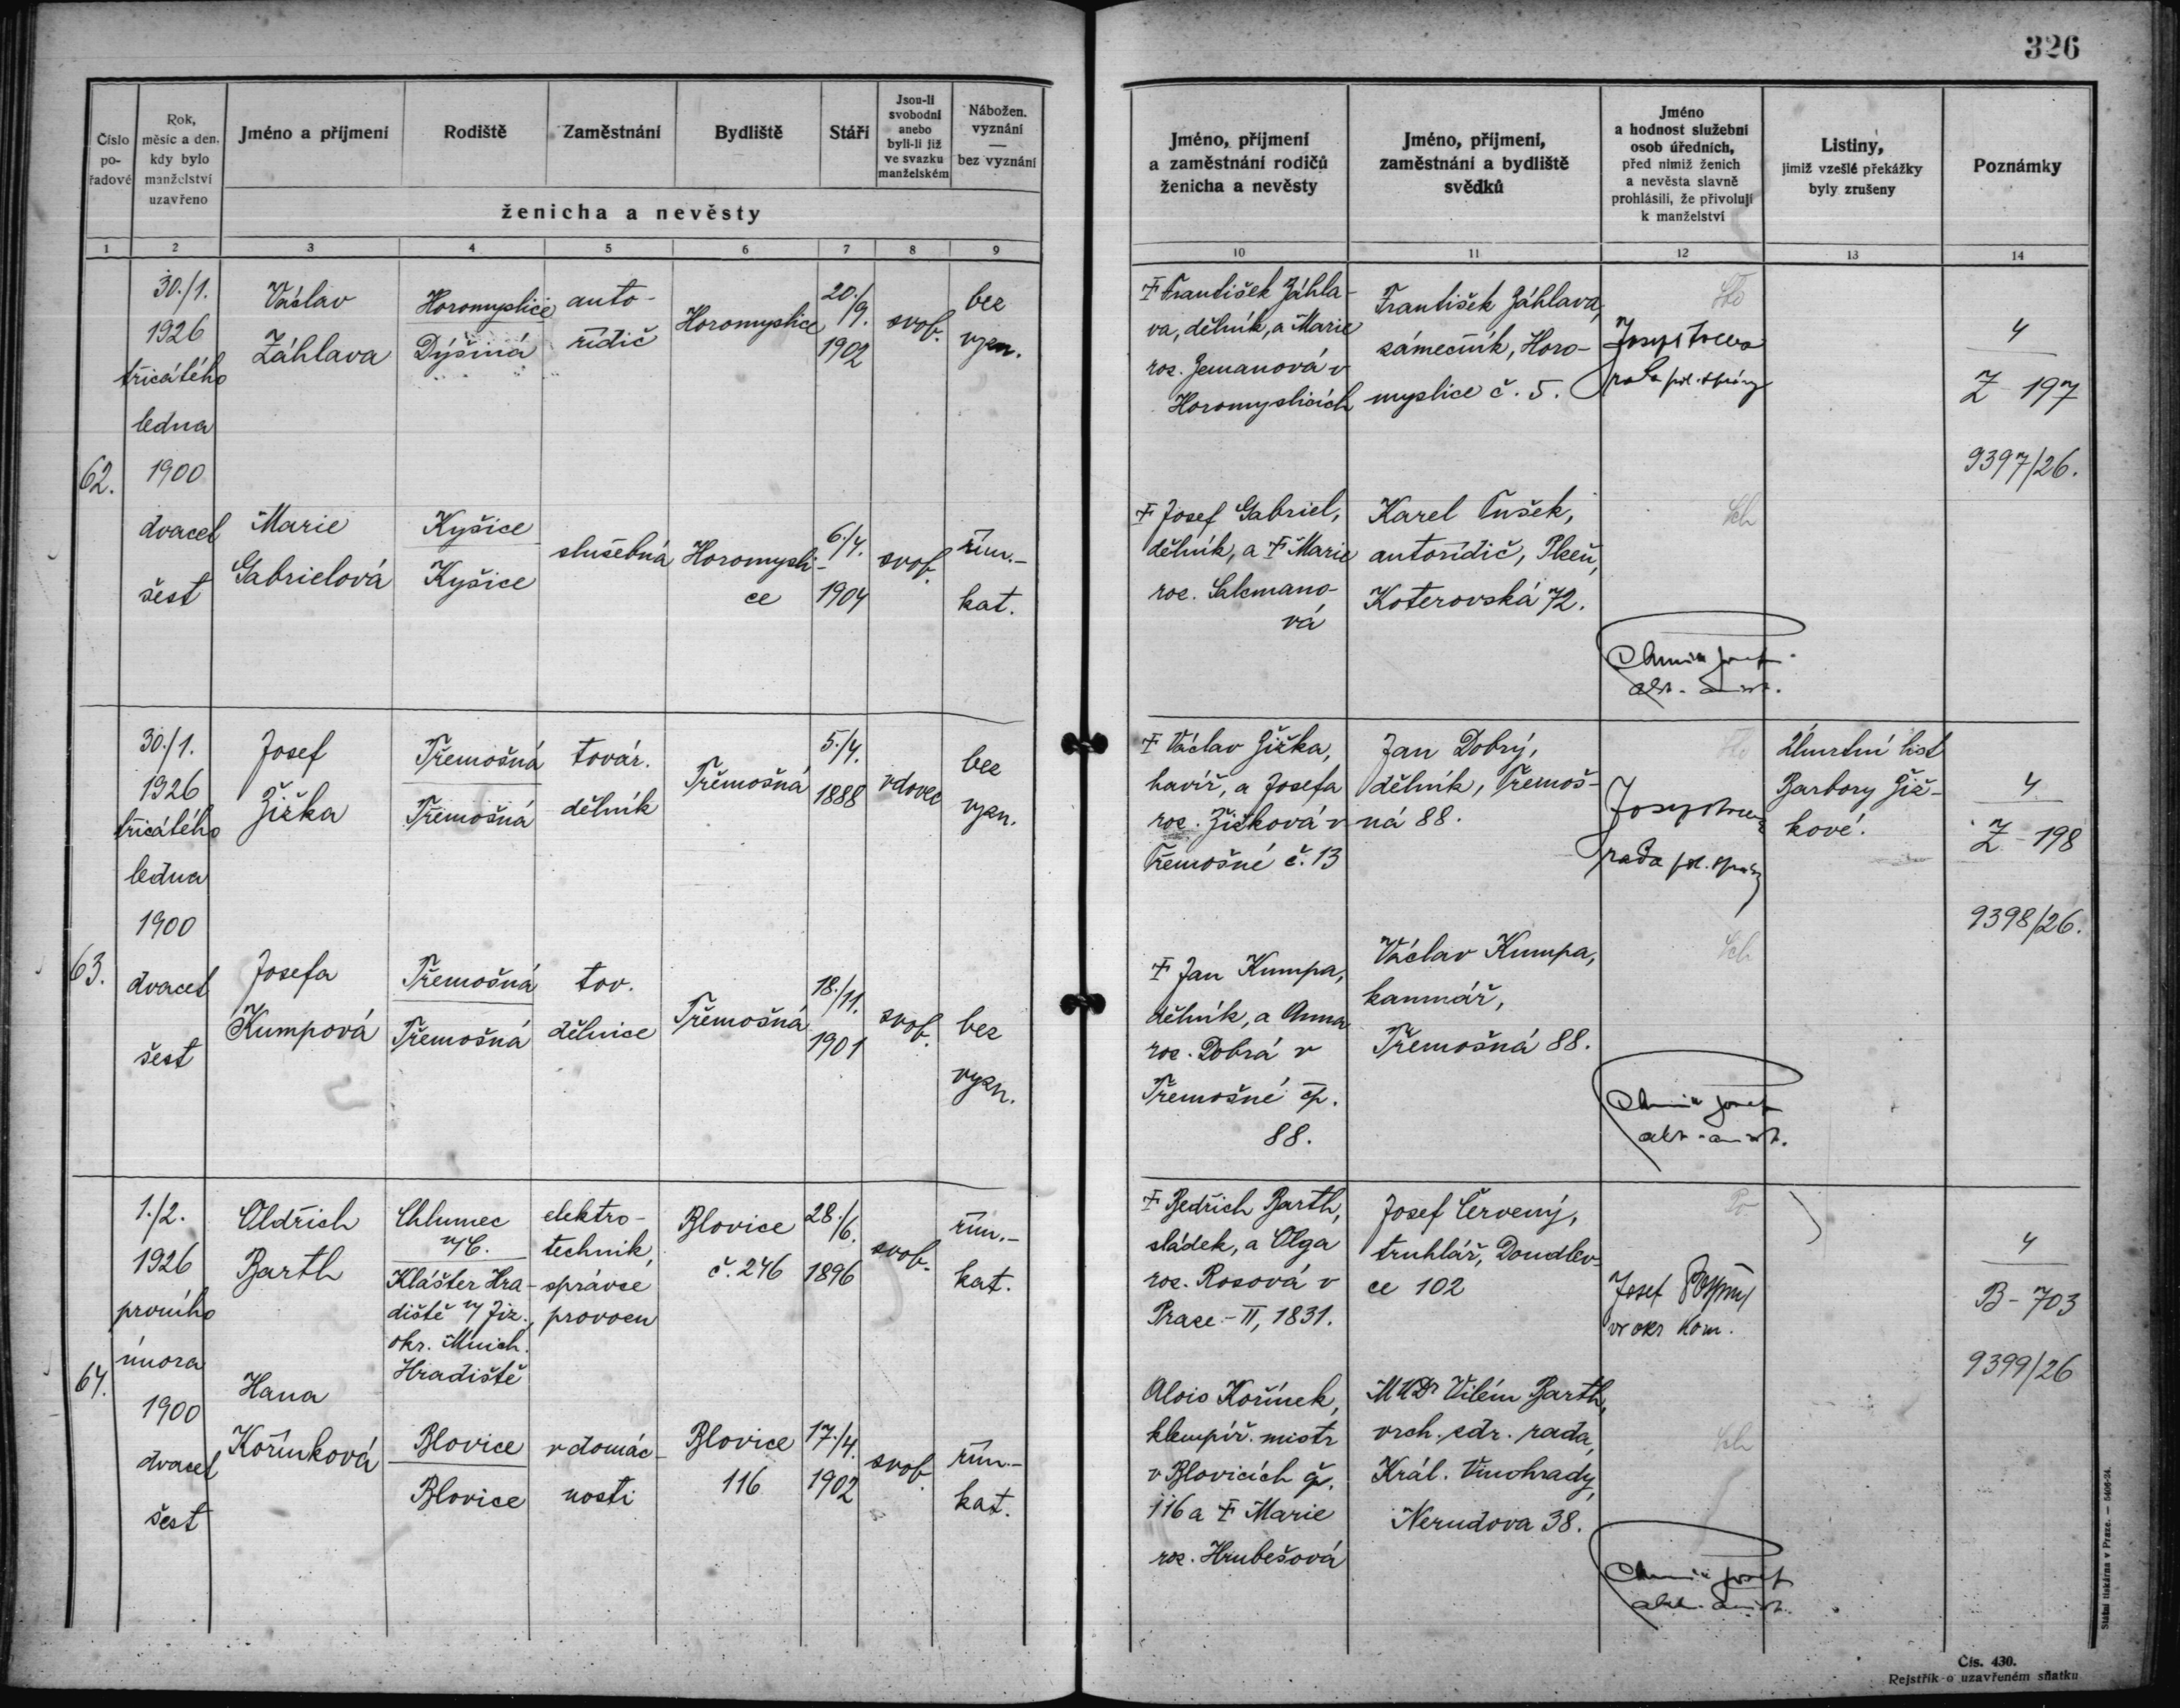 326
Číslo
po-
řadové
Rok,
měsíc a den,
kdy bylo
manželství
uzavřeno
Jméno a příjmení
Rodiště
Zaměstnání
Bydliště
Stáří
Jsou-li
svobodni
anebo
byli-li již
ve svazku
manželském
Nábožen.
vyznání
—
bez vyznání
ženicha a nevěsty
Jméno, příjmení
a zaměstnání rodičů
ženicha a nevěsty
Jméno, příjmení,
zaměstnání a bydliště
svědků
Jméno
a hodnost služební
osob úředních,
před nimiž ženich
a nevěsta slavně
prohlásili, že přivolují
k manželství
Listiny,
jimiž vzešlé překážky
byly zrušeny
Poznámky
1 2 3 4 5 6 7 8 9 10 11 12 13 14
62.
30./1.
1926
třicátého
ledna
1900
dvacet
šest
Václav
Záhlava
Horomyslice
Dýšiná
auto-
řidič
Horomyslice
20./9.
1902
svob.
bez
vyzn.
☨ František Záhla-
va, dělník, a Marie
roz. Zemanová v
Horomyslicích
František Záhlava,
zámečník, Horo-
myslice č. 5.
Josef
rada pol. správy
4
Z - 197
9397/26.
Marie
Gabrielová
Kyšice
Kyšice
služebná
Horomysli-
ce
6./4.
1904
svob.
řím.-
kat.
☨ Josef Gabriel,
dělník, a ☨ Marie
roz. Salcmano-
vá
Karel Tušek,
autořidič, Plzeň,
Koterovská 72.
Josef
63.
30./1.
1926
třicátého
ledna
1900
dvacet
šest
Josef
Žižka
Třemošná
Třemošná
továr.
dělník
Třemošná
5./4.
1888
vdovec
bez
vyzn.
☨ Václav Žižka,
havíř, a Josefa
roz. Žižková v
Třemošné č. 13
Jan Dobrý,
dělník, Třemoš-
ná 88.
Josef
rada pol. správy
Úmrtní list
Barbory Žiž-
kové.
4
Z - 198
9398/26.
Josefa
Kumpová
Třemošná
Třemošná
tov.
dělnice
Třemošná
18./11.
1901
svob.
bez
vyzn.
☨ Jan Kumpa,
dělník, a Anna
roz. Dobrá v
Třemošné čp.
88.
Václav Kumpa,
kamnář,
Třemošná 88.
Josef
64.
1./2.
1926
prvního
února
1900
dvacet
šest
Oldřich
Barth
Chlumec
n/C.
Klášter Hra-
diště n/Jiz.,
okr. Mnich.
Hradiště
elektro-
technik,
správce
provozu
Blovice
č. 246
28./6.
1896
svob.
řím.-
kat.
☨ Bedřich Barth,
sládek, a Olga
roz. Rosová v
Praze - II, 1831.
Josef Červený,
truhlář, Doudlev-
ce 102
Josef
vr okr kom.
4
B - 703
9399/26
Hana
Kořínková
Blovice
Blovice
v domác-
nosti
Blovice
116
17./4.
1902
svob.
řím.-
kat.
Alois Kořínek,
klempíř. mistr
v Blovicích čp.
116 a ☨ Marie
roz. Hrubešová
MUDr Vilém Barth,
vrch. zdr. rada,
Král. Vinohrady,
Nerudova 38.
Josef
Státní tiskárna v Praze. — 5406-24.
Čís. 430.
Rejstřík o uzavřeném sňatku